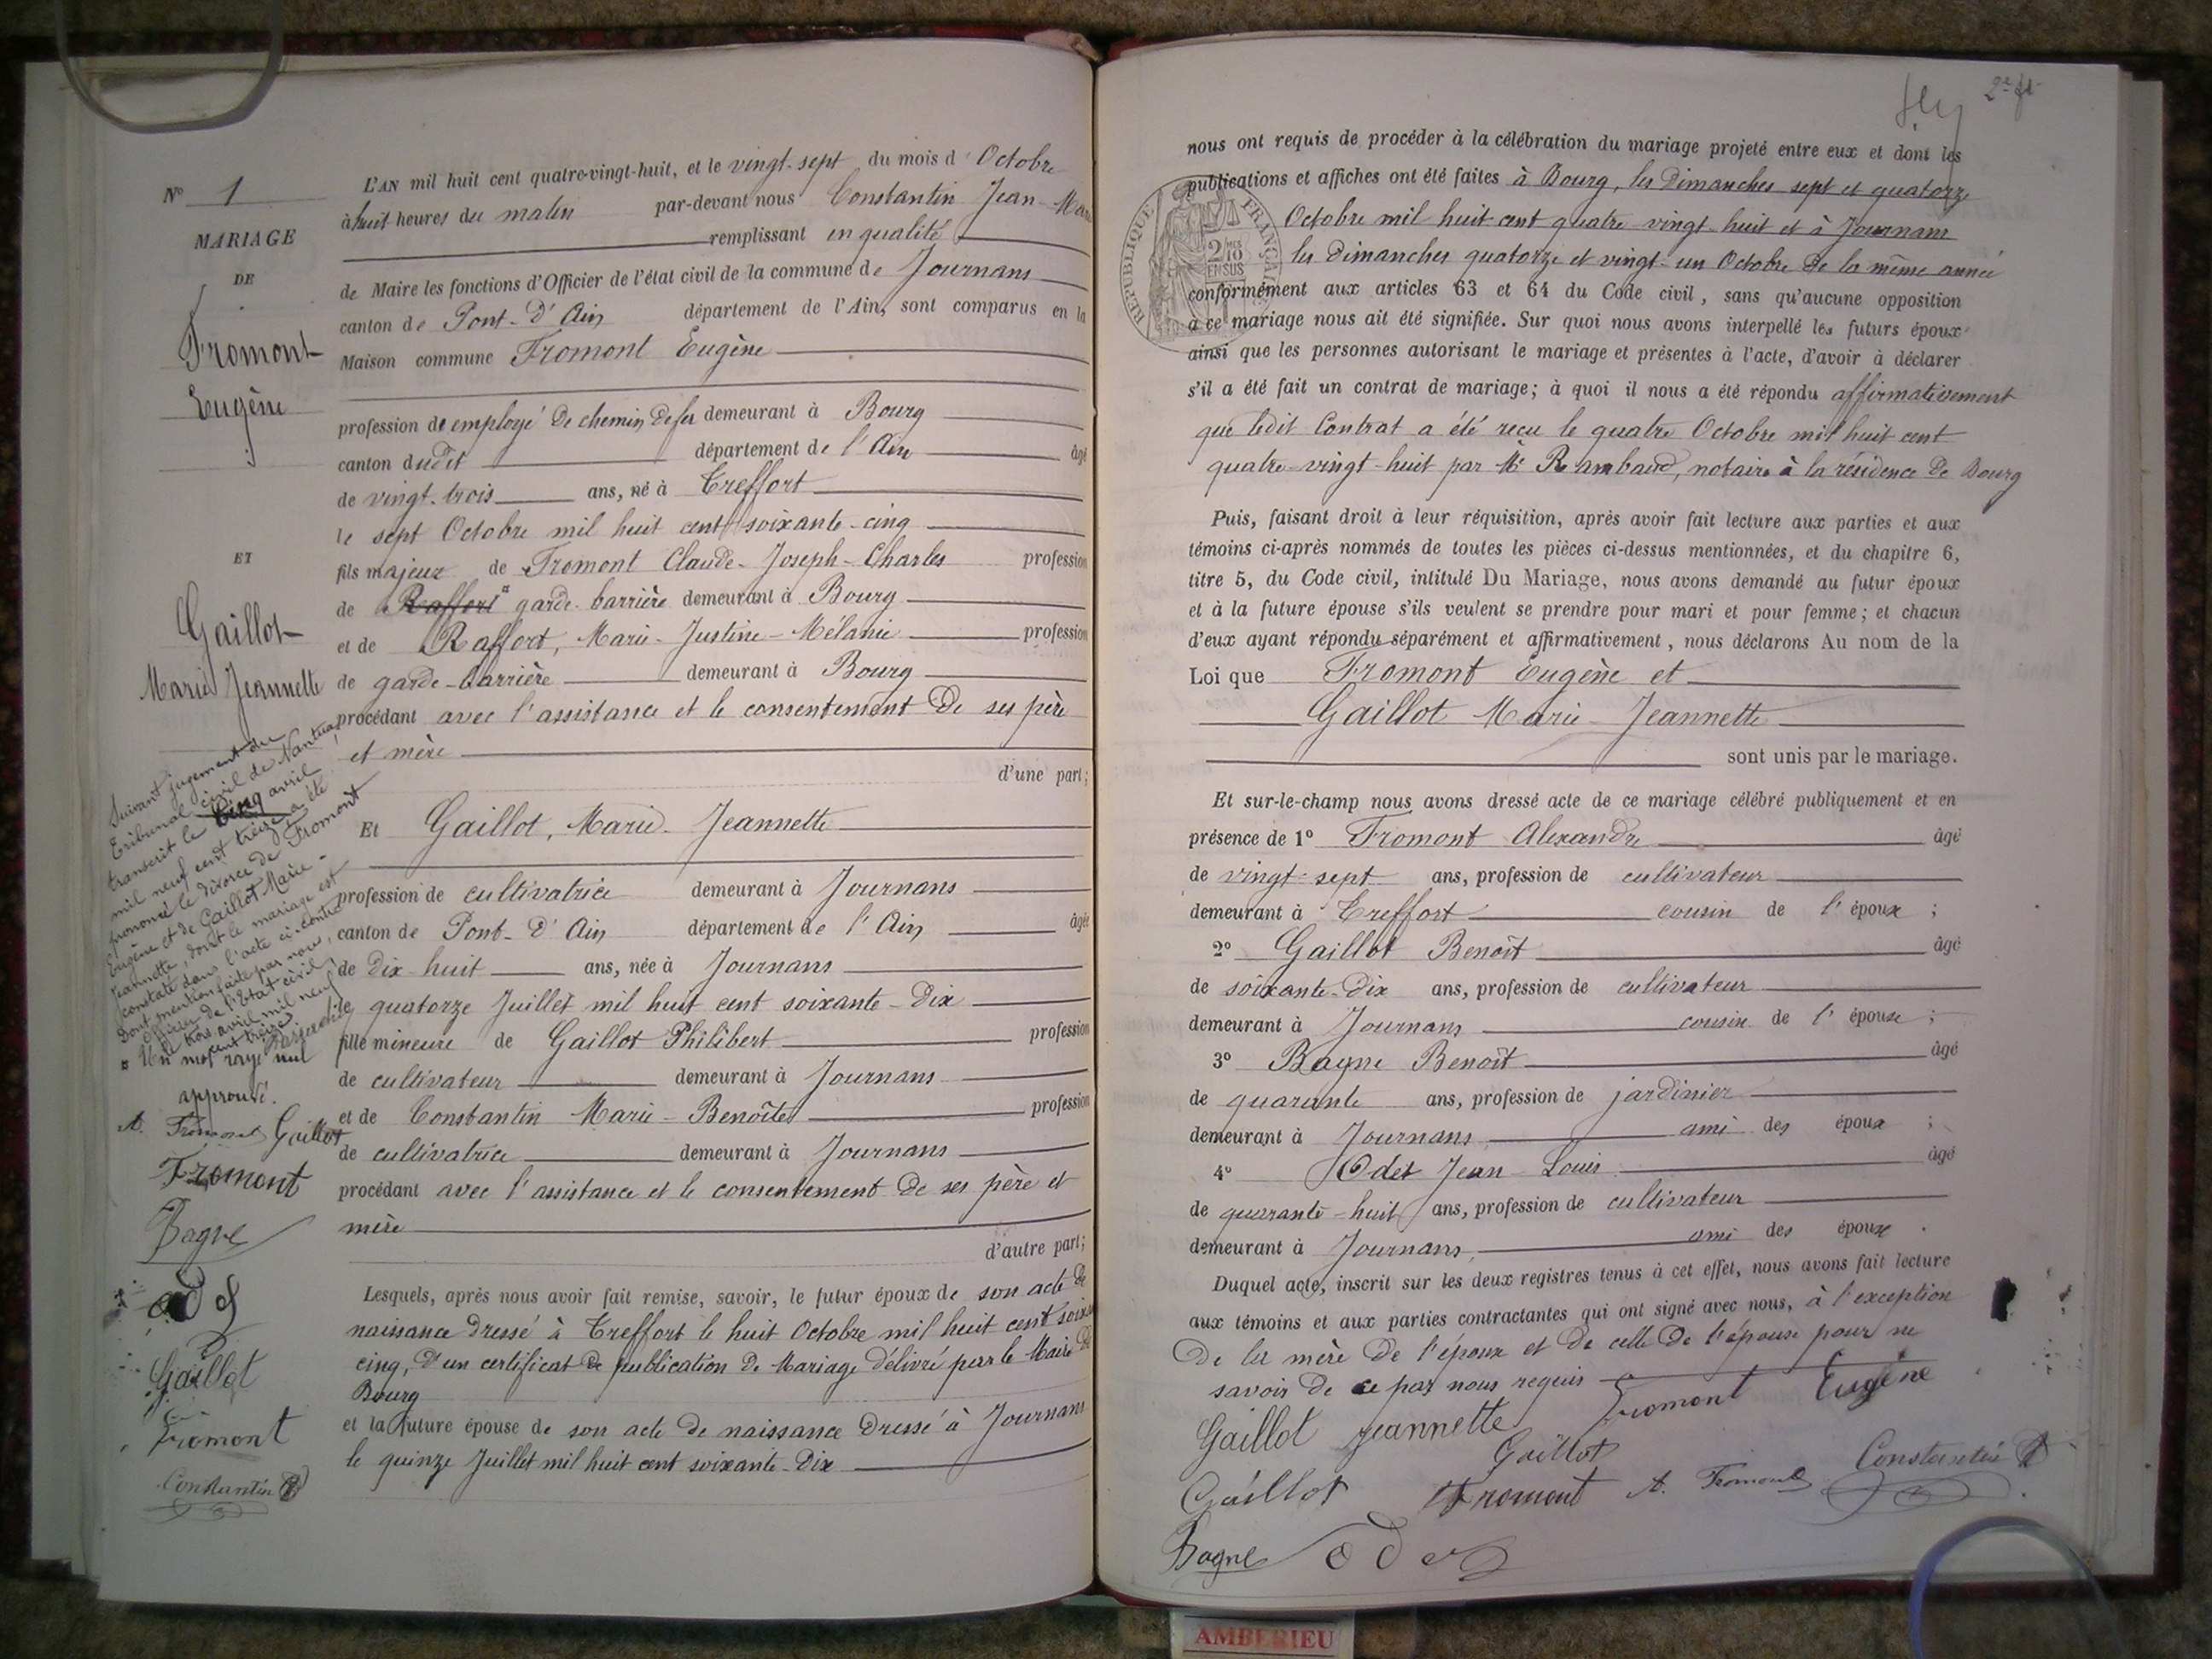 Nº 1
MARIAGE
DE
Fromont
Eugène
ET
Gaillot
Marie Jeannette
Suivant jugement du
Tribunal civil de Nantua,
transcrit le cinq avril
mil neuf cent treize a été
prononcé le divorce de Fromont
Eugène et de Gaillot Marie-
Jeannette, dont le mariage est
constaté dans l'acte ci-contre
Dont mention faite par nous,
officier de l'Etat civil,
le trois avril mil neuf
cent treize.
Un mot rayé nul
approuvé.
A. Fromont Gaillot
Fromont
Bagne
odet
Gaillot
Fromont
Constantin
L'AN mil huit cent quatre-vingt-huit, et le vingt-sept du mois d'Octobre
à huit heures du matin par-devant nous Constantin Jean-Marie
remplissant en qualité
de Maire les fonctions d'Officier de l'état civil de la commune de Journans
canton de Pont-d'Ain département de l'Ain, sont comparus en la
Maison commune Fromont Eugène
profession de employé de chemin de fer demeurant à Bourg
canton dudit département de l'Ain âgé
de vingt-trois ans, né à Treffort
le sept Octobre mil huit cent soixante-cinq
fils majeur de Fromont Claude-Joseph-Charles profession
de Raffort garde-barrière demeurant à Bourg
et de Raffort, Marie-Justine-Mélanie profession
de garde-barrière demeurant à Bourg
procédant avec l'assistance et le consentement de ses père
et mère
d'une part;
Et Gaillot, Marie-Jeannette
profession de cultivatrice demeurant à Journans
canton de Pont-d'Ain département de l'Ain âgée
de dix-huit ans, née à Journans
le quatorze Juillet mil huit cent soixante-dix
fille mineure de Gaillot Philibert profession
de cultivateur demeurant à Journans
et de Constantin Marie-Benoîte profession
de cultivatrice demeurant à Journans
procédant avec l'assistance et le consentement de ses père et
mère
d'autre part;
Lesquels, après nous avoir fait remise, savoir, le futur époux de son acte de
naissance dressé à Treffort le huit Octobre mil huit cent soixante
cinq, d'un certificat de publication de Mariage délivré par le Maire de
Bourg
et la future épouse de son acte de naissance dressé à Journans
le quinze Juillet mil huit cent soixante-dix
2e ft
nous ont requis de procéder à la célébration du mariage projeté entre eux et dont les
publications et affiches ont été faites à Bourg, les Dimanches sept et quatorze
Octobre mil huit cent quatre-vingt-huit et à Journans
les Dimanches quatorze et vingt-un Octobre de la même année
conformément aux articles 63 et 64 du Code civil, sans qu'aucune opposition
à ce mariage nous ait été signifiée. Sur quoi nous avons interpellé les futurs époux
ainsi que les personnes autorisant le mariage et présentes à l'acte, d'avoir à déclarer
s'il a été fait un contrat de mariage; à quoi il nous a été répondu affirmativement
que ledit Contrat a été reçu le quatre Octobre mil huit cent
quatre-vingt-huit par Me Rambaud, notaire à la résidence de Bourg
RÉPUBLIQUE FRANÇAISE
2/10 EN SUS
Puis, faisant droit à leur réquisition, après avoir fait lecture aux parties et aux
témoins ci-après nommés de toutes les pièces ci-dessus mentionnées, et du chapitre 6,
titre 5, du Code civil, intitulé Du Mariage, nous avons demandé au futur époux
et à la future épouse s'ils veulent se prendre pour mari et pour femme; et chacun
d'eux ayant répondu séparément et affirmativement, nous déclarons Au nom de la
Loi que Fromont Eugène et
Gaillot Marie-Jeannette
sont unis par le mariage.
Et sur-le-champ nous avons dressé acte de ce mariage célébré publiquement et en
présence de 1º Fromont Alexandre âgé
de vingt-sept ans, profession de cultivateur
demeurant à Treffort cousin de l'époux;
2º Gaillot Benoît âgé
de soixante-dix ans, profession de cultivateur
demeurant à Journans cousin de l'épouse;
3º Bagne Benoît âgé
de quarante ans, profession de jardinier
demeurant à Journans ami des époux;
4º Odet Jean-Louis âgé
de quarante-huit ans, profession de cultivateur
demeurant à Journans, ami des époux.
Duquel acte, inscrit sur les deux registres tenus à cet effet, nous avons fait lecture
aux témoins et aux parties contractantes qui ont signé avec nous, à l'exception
de la mère de l'époux et de celle de l'épouse pour ne
savoir de ce par nous requis
Gaillot Jeannette Fromont Eugène
Gaillot
Gaillot Fromont A. Fromont Constantin
Bagne odet
AMBERIEU